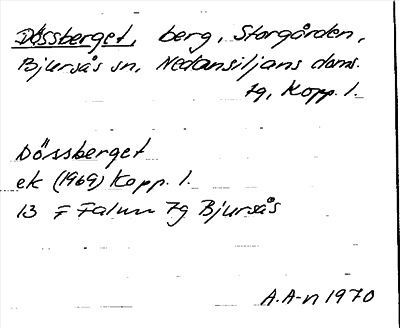 Dössberget, berg, Storgården,
Bjursås sn, Nedansiljans doms.
7g, Kopp. l.
Dössberget
ek (1969) Kopp. l.
13 F Falun 7g Bjursås
A.A-n 1970